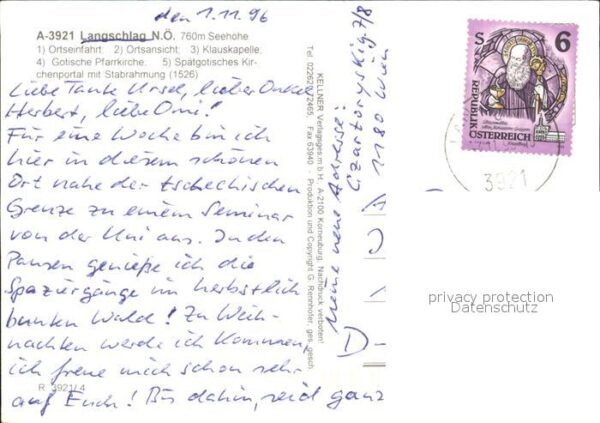 den 1.11.96
A-3921 Langschlag N.Ö. 760m Seehöhe
1) Ortseinfahrt 2) Ortsansicht; 3) Klauskapelle;
4) Gotische Pfarrkirche. 5) Spätgotisches Kir-
chenportal mit Stabrahmung (1526)
Liebe Tante Ursel, lieber Onkel
Herbert, liebe Omi!
Für eine Woche bin ich
hier in diesem schönen
Ort nahe der tschechischen
Grenze zu einem Seminar
von der Uni aus. In den
Pausen genieße ich die
Spaziergänge im herbstlich
bunten Wald! Zu Weih-
nachten werde ich kommen,
ich freue mich schon sehr
auf Euch! Bis dahin, seid ganz
R 3921/4
KELLNER Verlagsges.m.b.H. A-2100 Korneuburg. Nachdruck verboten!
Tel. 02262/72465, Fax 63940 - Produktion und Copyright G. Rennhofer, ges. gesch.
Meine neue Adresse:
Czartoryskig. 7/8
A 1180 Wien
S 6
REPUBLIK
ÖSTERREICH
3921
privacy protection
Datenschutz